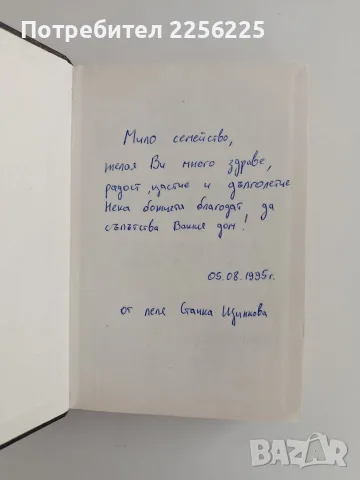 Потребител 2256225
Мило семейство,
желая Ви много здраве,
радост, щастие и дълголетие
Нека божията благодат да
съпътства Вашия дом!
05.08.1995г.
от леля Станка Щинкова
BAZAR